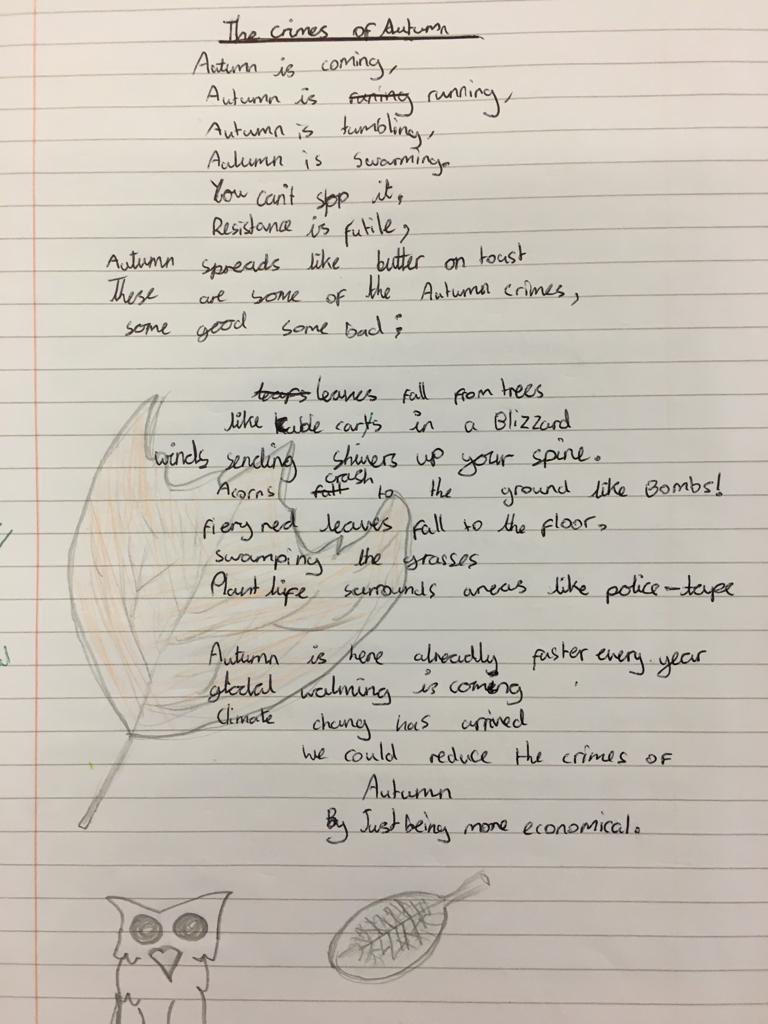 The crimes of Autumn
Autumn is coming,
Autumn is runing running,
Autumn is tumbling,
Autumn is swarming.
You can't stop it,
Resistance is futile,
Autumn spreads like butter on toast
These are some of the Autumn crimes,
some good some bad;
leaves fall from trees
like cable carts in a Blizzard
winds sending shivers up your spine.
Acorns fall crash to the ground like Bombs!
fiery red leaves fall to the floor,
swamping the grasses
Plant life surrounds areas like police-tape
Autumn is here alreadly faster every year
glodal walming is coming
Climate chang has arrived
we could reduce the crimes of
Autumn
By Just being more economical.